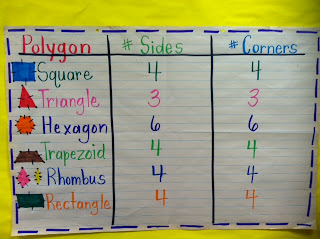 Polygon # Sides # Corners
Square 4 4
Triangle 3 3
Hexagon 6 6
Trapezoid 4 4
Rhombus 4 4
Rectangle 4 4